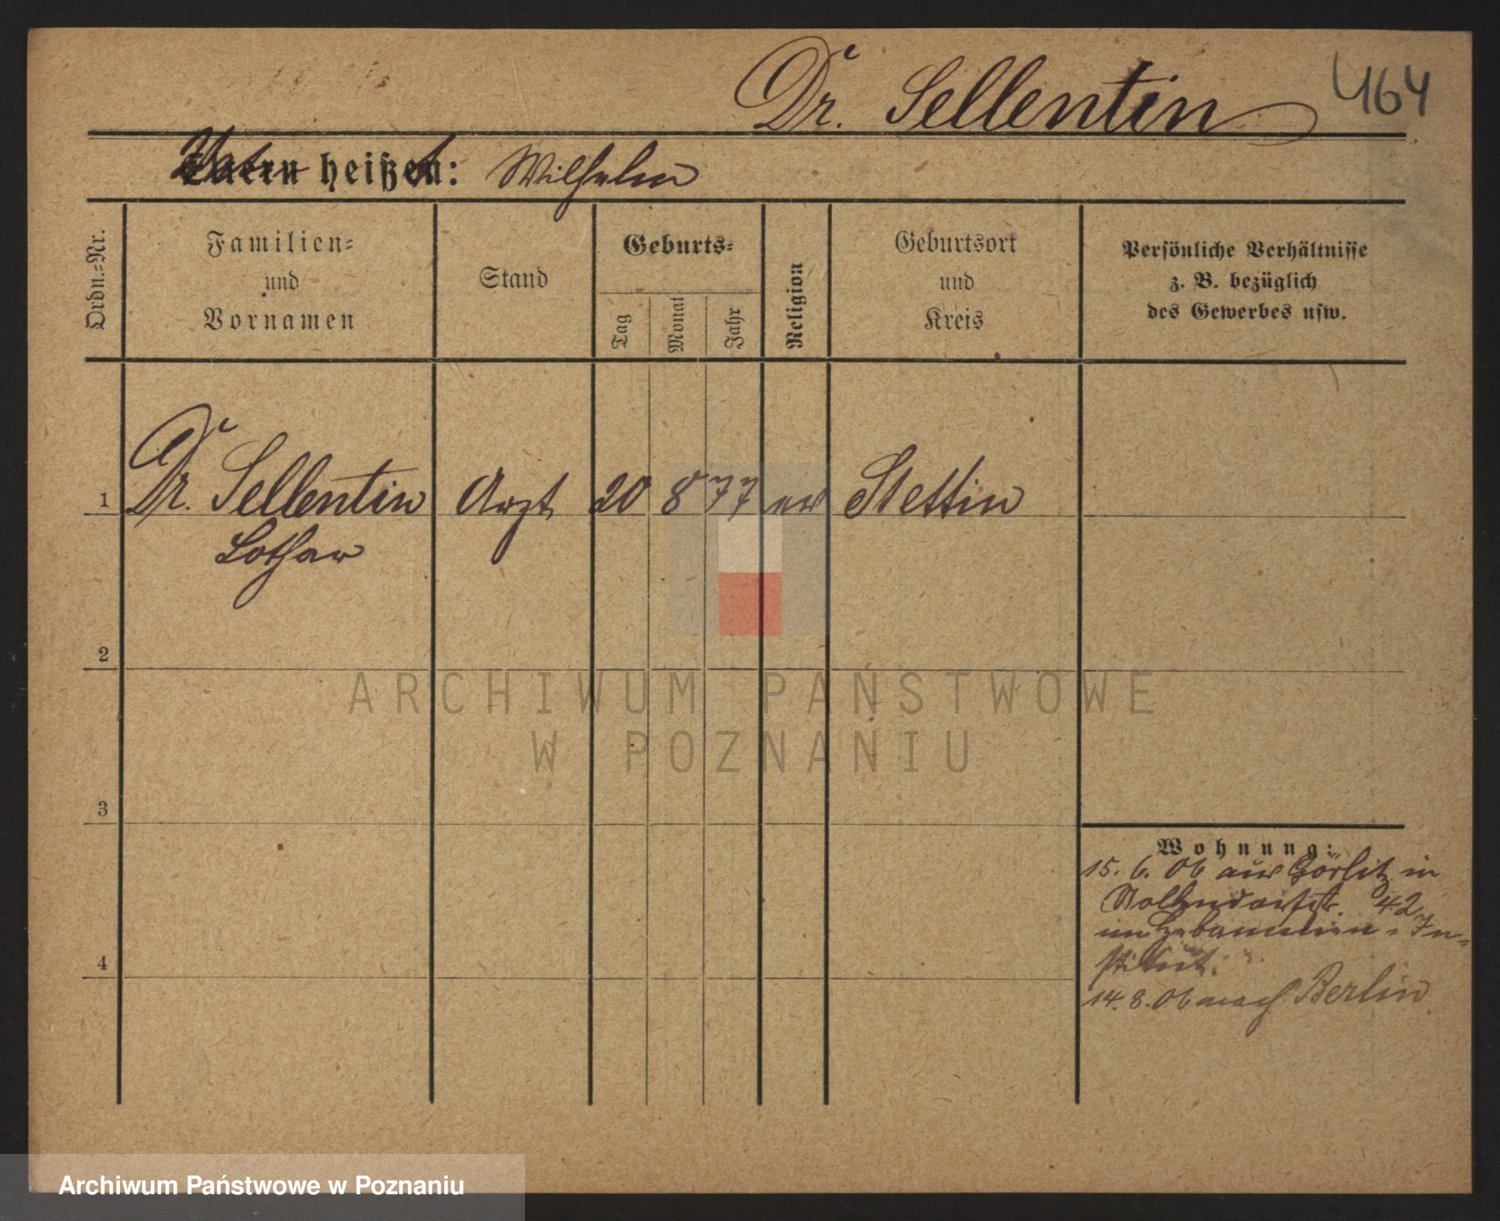 Dr. Sellentin
464
Vater heißt: Wilhelm
Ordn.-Nr.
Familien-
und
Vornamen
Stand
Geburts-
Tag
Monat
Jahr
Religion
Geburtsort
und
Kreis
Persönliche Verhältnisse
z. B. bezüglich
des Gewerbes usw.
1 Dr. Sellentin Arzt 20 8 77 ev Stettin
Lothar
2
3
4
Wohnung:
15. 6. 06 aus Görlitz in
42
im Hebammen-In-
stitut.
14. 8. 06 nach Berlin
ARCHIWUM PAŃSTWOWE
W POZNANIU
Archiwum Państwowe w Poznaniu